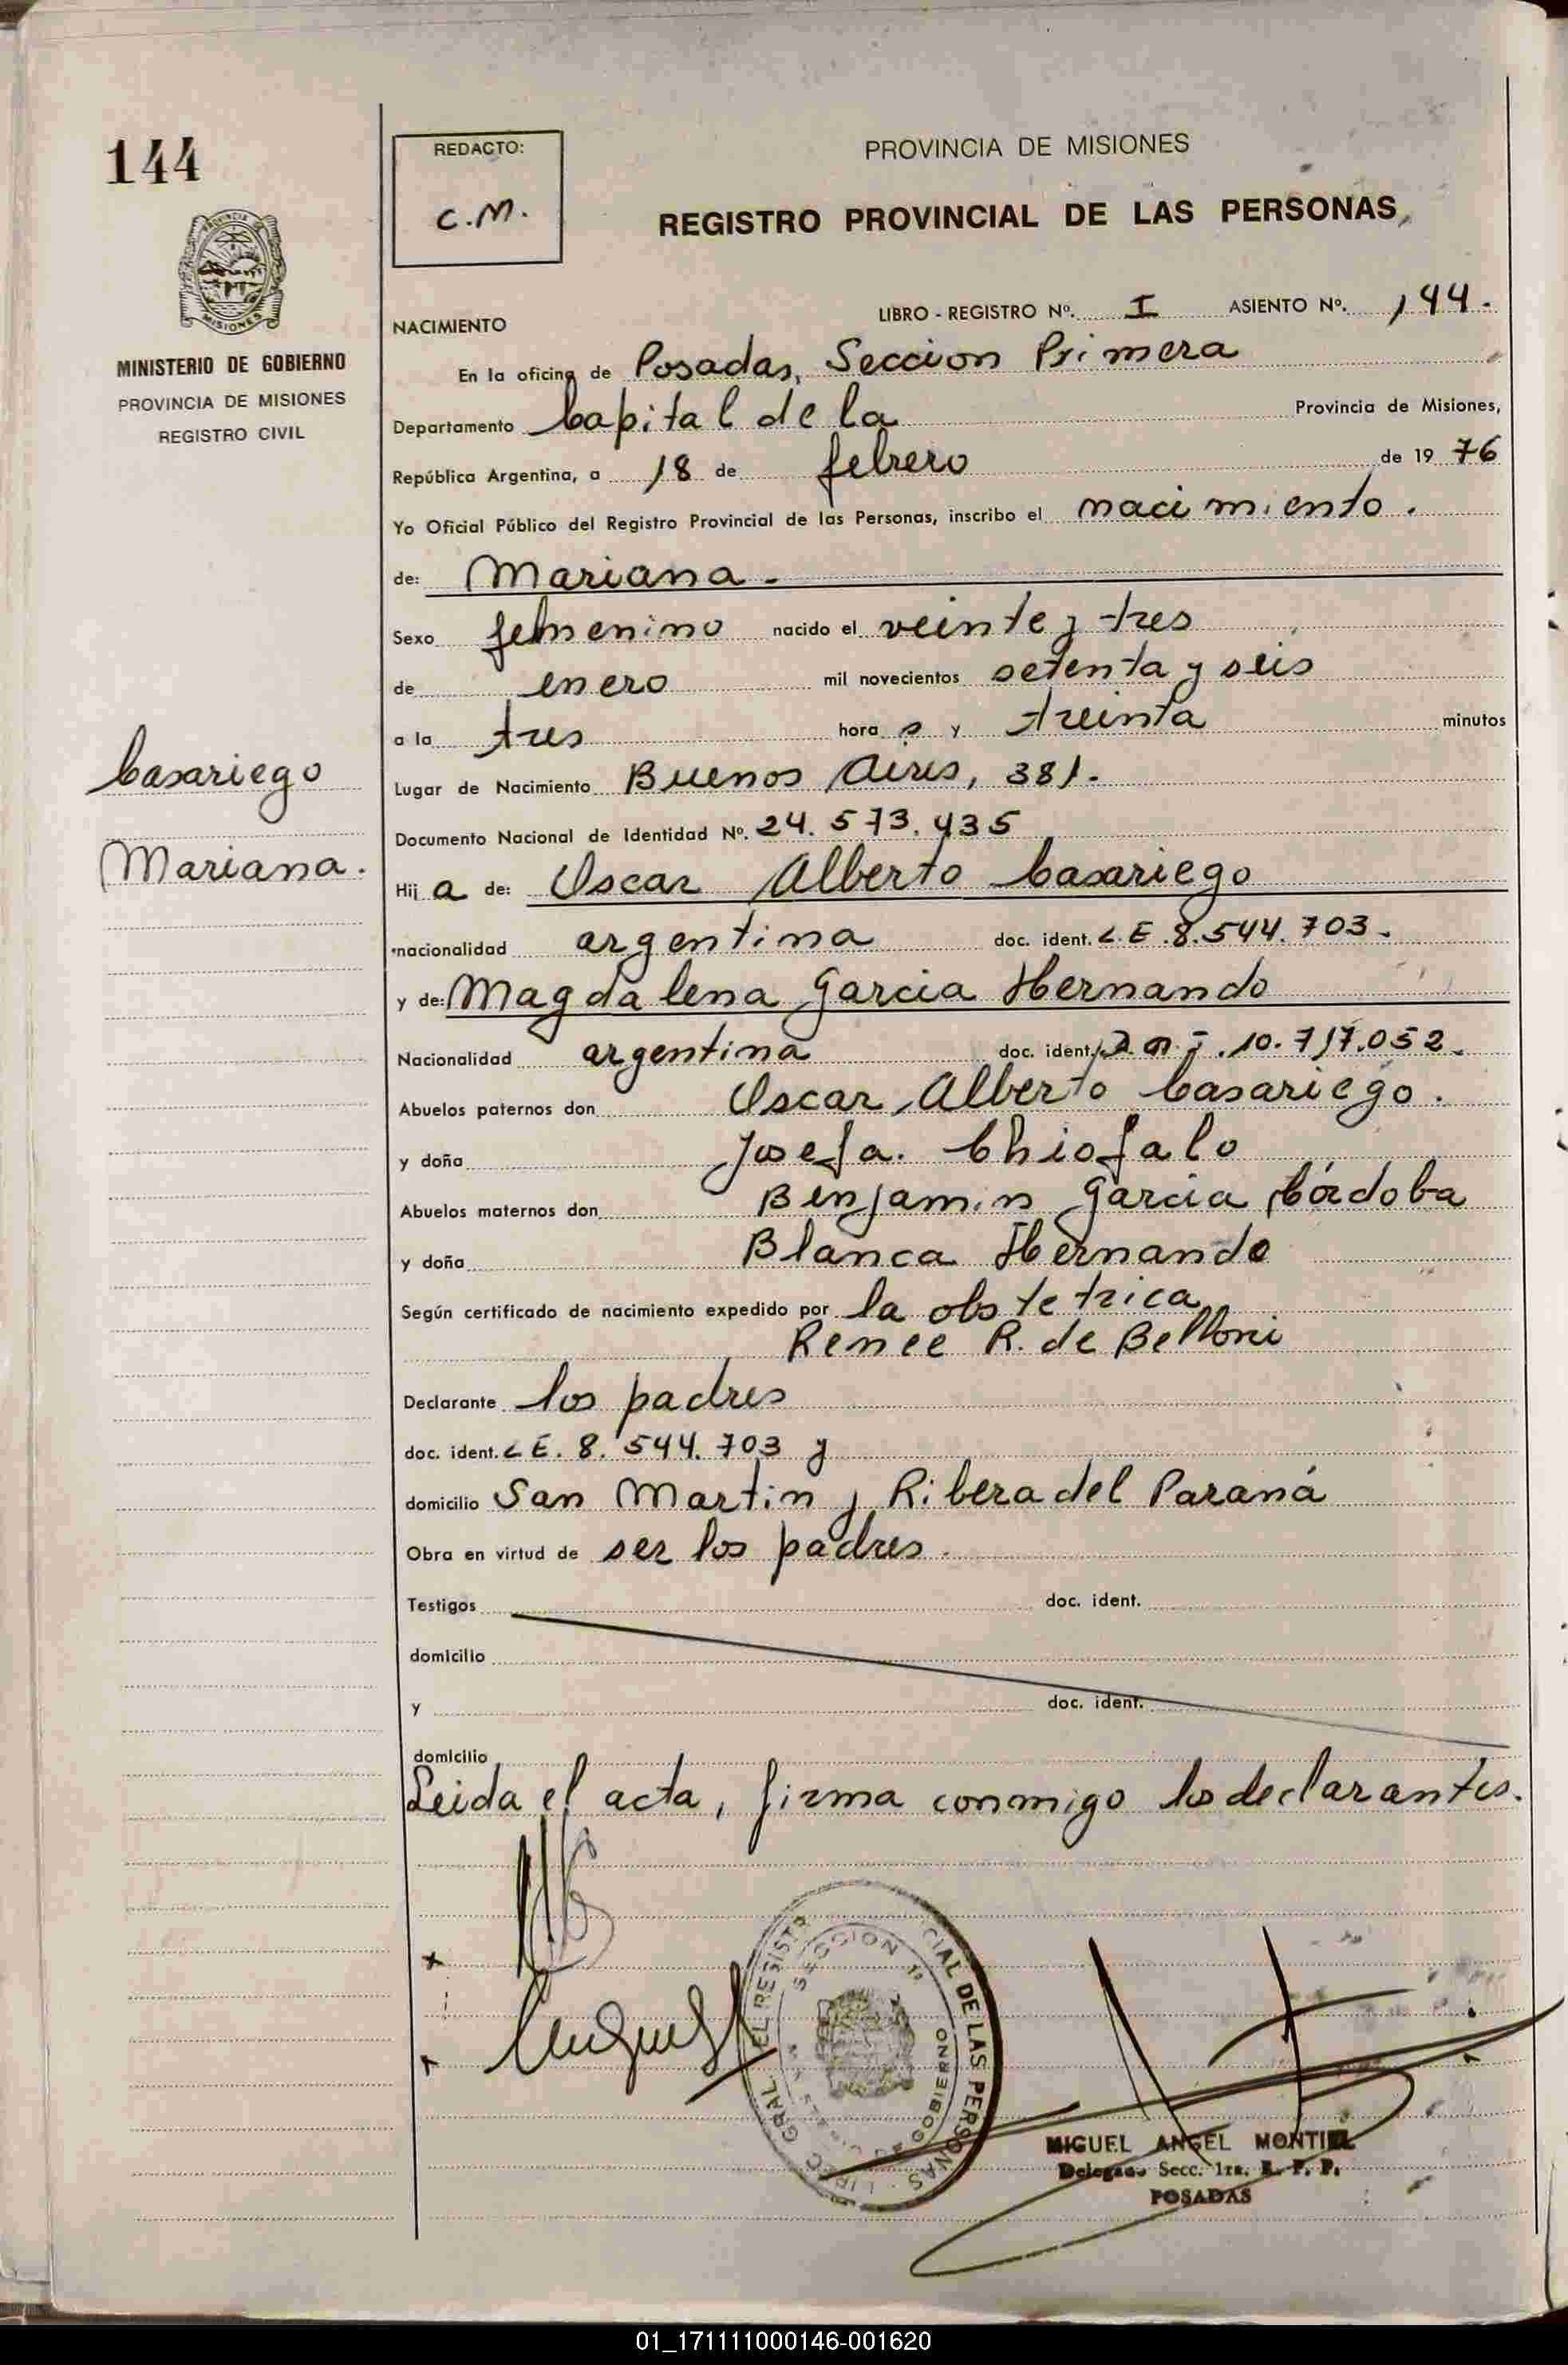 144
REDACTO:
C.M.
PROVINCIA DE MISIONES
REGISTRO PROVINCIAL DE LAS PERSONAS
PROVINCIA
MISIONES
MINISTERIO DE GOBIERNO
PROVINCIA DE MISIONES
REGISTRO CIVIL
NACIMIENTO
LIBRO - REGISTRO Nº. I ASIENTO Nº. 144.
En la oficina de Posadas, Seccion Primera
Departamento Capital de la Provincia de Misiones,
República Argentina, a 18 de febrero de 19 76
Yo Oficial Público del Registro Provincial de las Personas, inscribo el nacimiento.
de: Mariana.
Sexo femenino nacido el veinte y tres
de enero mil novecientos setenta y seis
a la tres hora s y treinta minutos
Casariego
Mariana.
Lugar de Nacimiento Buenos Aires, 381.
Documento Nacional de Identidad Nº. 24.573.435
Hij a de: Oscar Alberto Casariego
nacionalidad argentina doc. ident. L.E. 8.544.703.
y de: Magdalena Garcia Hernando
Nacionalidad argentina doc. ident. 10.717.052.
Abuelos paternos don Oscar Alberto Casariego.
y doña Josefa. Chiofalo
Abuelos maternos don Benjamin Garcia Córdoba
y doña Blanca Hernando
Según certificado de nacimiento expedido por la obstetrica
Renee R. de Belloni
Declarante los padres
doc. ident. L E. 8.544.703 y
domicilio San Martin y Ribera del Paraná
Obra en virtud de ser los padres.
Testigos doc. ident.
domicilio
y doc. ident.
domicilio
Leida el acta, firma conmigo los declarantes.
SECCION 1º
CIAL DE LAS PERSONAS
GRAL
GOBIERNO
MIGUEL ANGEL MONTIEL
Delegado Secc. 1ra. R. P. P.
POSADAS
01_171111000146-001620